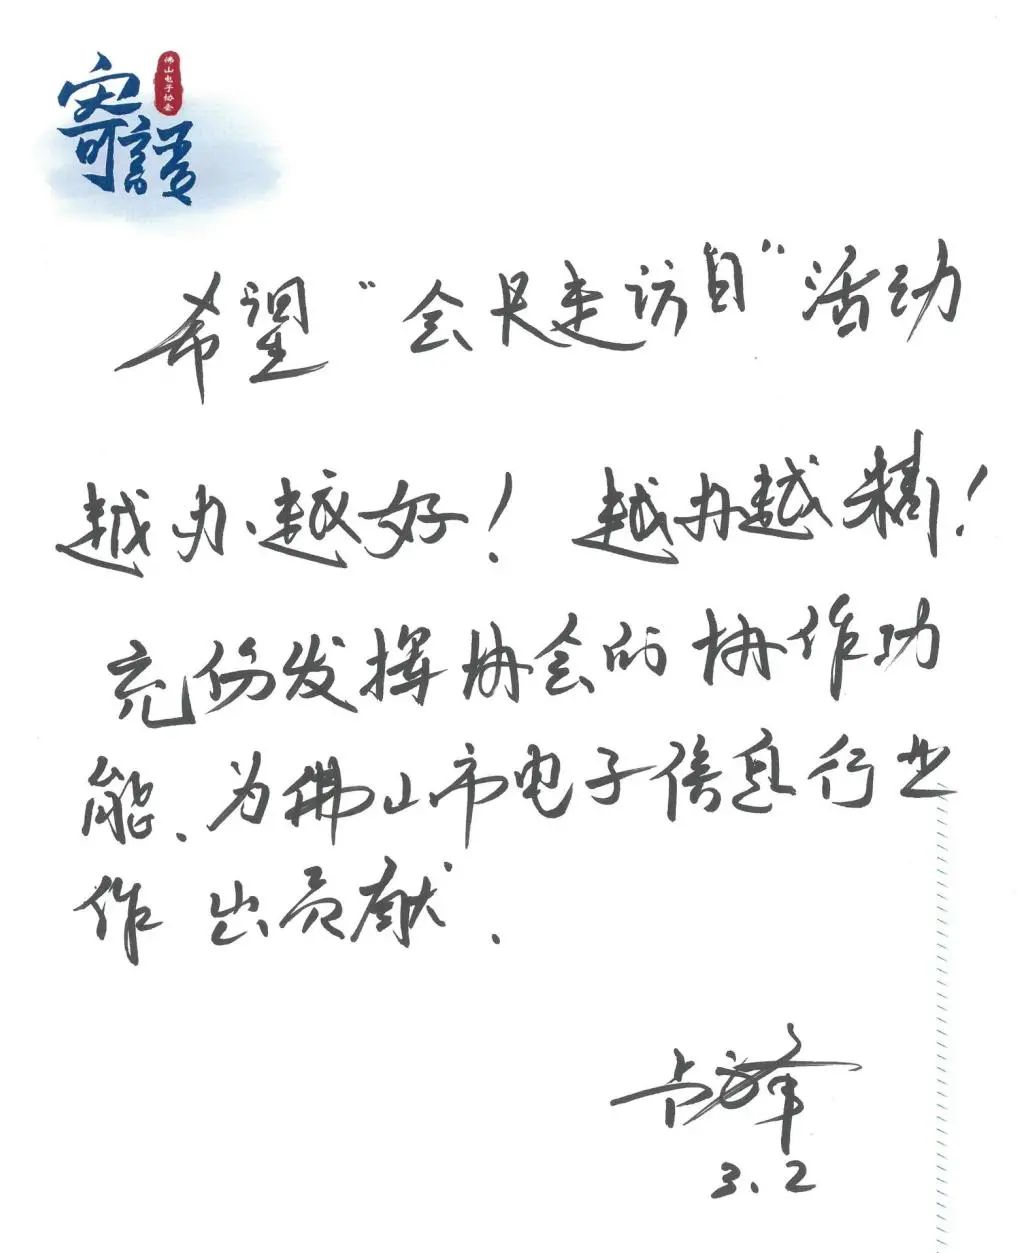 佛山电子协会
寄語
希望“会员走访日”活动
越办越好！越办越精！
充份发挥协会的协作功
能、为佛山市电子信息行业
作出贡献.
3.2